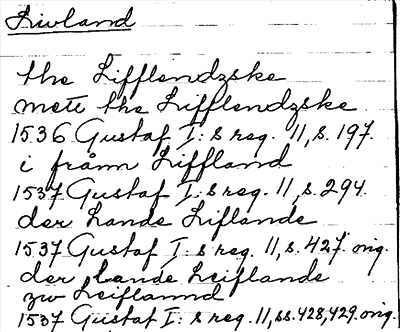 Livland
the Lifflendzske
mett the Lifflendzske
1536 Gustaf I:s reg. 11, s. 197.
i frånn Liffland
1537 Gustaf I:s reg. 11, s. 294.
der Lande Liflande
1537 Gustaf I:s reg. 11, s. 427 orig.
der Lande Leiflande
zw Leiflannd
1537 Gustaf I:s reg. 11, ss. 428, 429. orig.